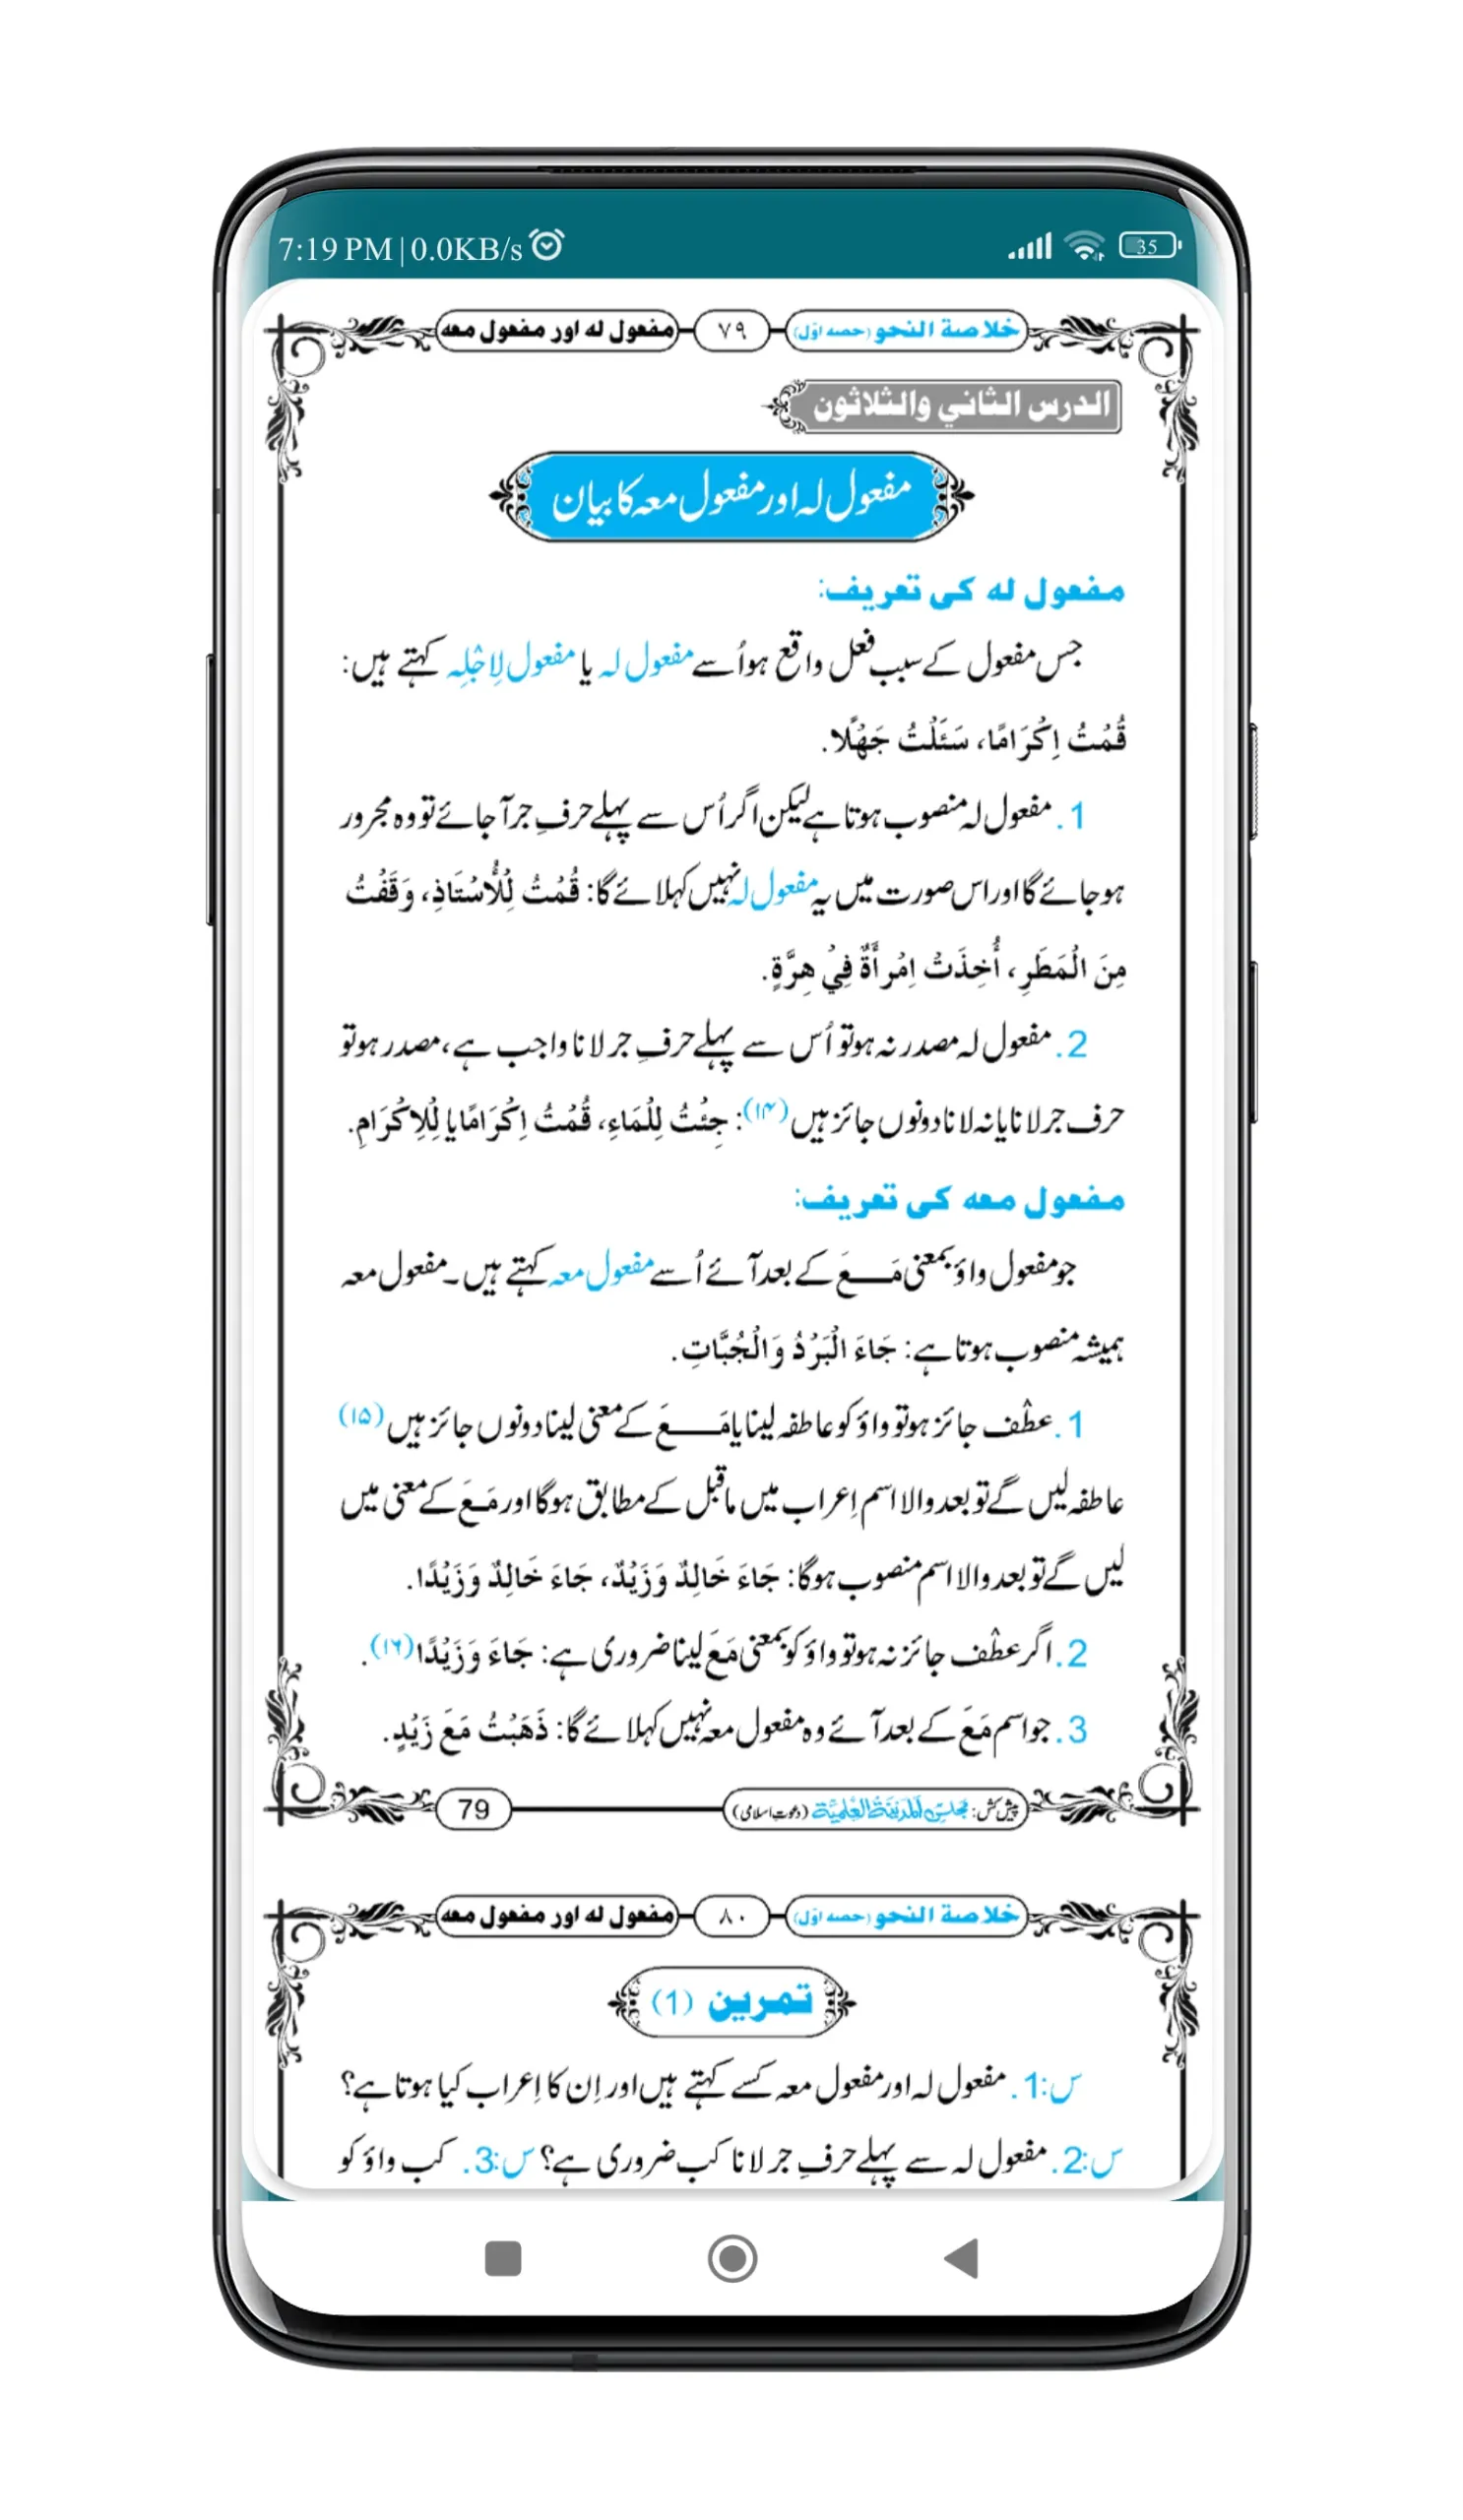 7:19 PM | 0.0KB/s
35
خلاصة النحو (حصه اوّل) ٧٩ مفعول له اور مفعول معه
الدرس الثاني والثلاثون
مفعول لہ اور مفعول معہ کا بیان
مفعول له کی تعریف:
جس مفعول کے سبب فعل واقع ہو اُسے مفعول لہ یا مفعول لِاَجْلِہ کہتے ہیں:
قُمْتُ اِكْرَامًا، سَئَلْتُ جَهْلًا.
1. مفعول لہ منصوب ہوتا ہے لیکن اگر اُس سے پہلے حرفِ جر آ جائے تو وہ مجرور
ہو جائے گا اور اس صورت میں یہ مفعول لہ نہیں کہلائے گا: قُمْتُ لِلْأُسْتَاذِ، وَقَفْتُ
مِنَ الْمَطَرِ، أُخِذَتْ اِمْرأَةٌ فِيْ هِرَّةٍ.
2. مفعول لہ مصدر نہ ہو تو اُس سے پہلے حرفِ جر لانا واجب ہے، مصدر ہو تو
حرف جر لانا یا نہ لانا دونوں جائز ہیں (۱۴): جِئْتُ لِلْمَاءِ، قُمْتُ اِكْرَامًا یا لِلْاِكْرَامِ.
مفعول معه کی تعریف:
جو مفعول واؤ بمعنی مَـــعَ کے بعد آئے اُسے مفعول معہ کہتے ہیں۔ مفعول معہ
ہمیشہ منصوب ہوتا ہے: جَاءَ الْبَرْدُ وَالْجُبَّاتِ.
1. عطْف جائز ہو تو واؤ کو عاطفہ لینا یا مَـــعَ کے معنی لینا دونوں جائز ہیں (۱۵)
عاطفہ لیں گے تو بعد والا اسم اِعراب میں ماقبل کے مطابق ہوگا اور مَـعَ کے معنی میں
لیں گے تو بعد والا اسم منصوب ہوگا: جَاءَ خَالِدٌ وَزَيْدٌ، جَاءَ خَالِدٌ وَزَيْدًا.
2. اگر عطْف جائز نہ ہو تو واؤ کو بمعنی مَعَ لینا ضروری ہے: جَاءَ وَزَيْدًا (۱۶).
3. جو اسم مَعَ کے بعد آئے وہ مفعول معہ نہیں کہلائے گا: ذَهَبْتُ مَعَ زَيْدٍ.
پیش کش: مجلس المدینة العلمیة (دعوت اسلامی) 79
خلاصة النحو (حصه اوّل) ٨٠ مفعول له اور مفعول معه
تمرین (1)
س:1. مفعول لہ اور مفعول معہ کسے کہتے ہیں اور اِن کا اِعراب کیا ہوتا ہے؟
س:2. مفعول لہ سے پہلے حرفِ جر لانا کب ضروری ہے؟ س:3. کب واؤ کو